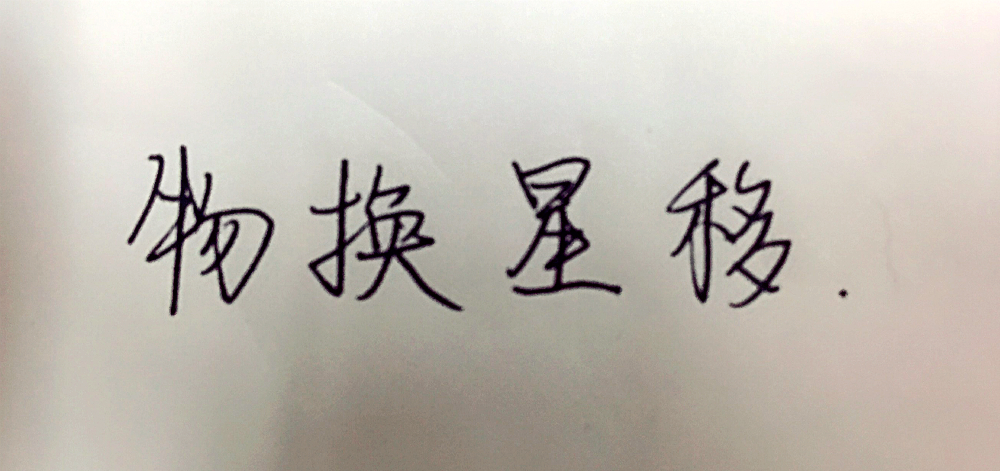 物换星移.